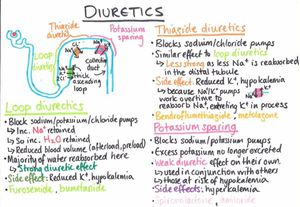 DIURETICS
Thiazide diuretics
Potassium sparing
Loop diuretics
collecting duct
thick ascending loop
Loop diurectics
• Block sodium/potassium/chloride pumps
↳ Inc. Na⁺ retained
↳ So inc. H₂O retained
↳ Reduced blood volume (afterload, preload)
• Majority of water reabsorbed here
↳ Strong diuretic effect
• Side effect: Reduced K⁺, hypokalemia
• Furosemide, bumetanide
Thiazide diuretics
• Blocks sodium/chloride pumps
• Similar effect to loop diuretics
↳ Less strong as less Na⁺ is reabsorbed
in the distal tubule
• Side effect: Reduced K⁺, hypokalemia
↳ because Na⁺/K⁺ pumps
work overtime to
reabsorb Na⁺, excreting K⁺ in process
• Bendroflumethiazide, metolazone
Potassium sparing
• Blocks sodium/potassium pumps
• Excess potassium no longer excreted
• Weak diuretic effect on their own
↳ used in conjunction with others
↳ those at risk of hypokalemia
• Side effects: hyperkalemia
• Spironolactone, amiloride